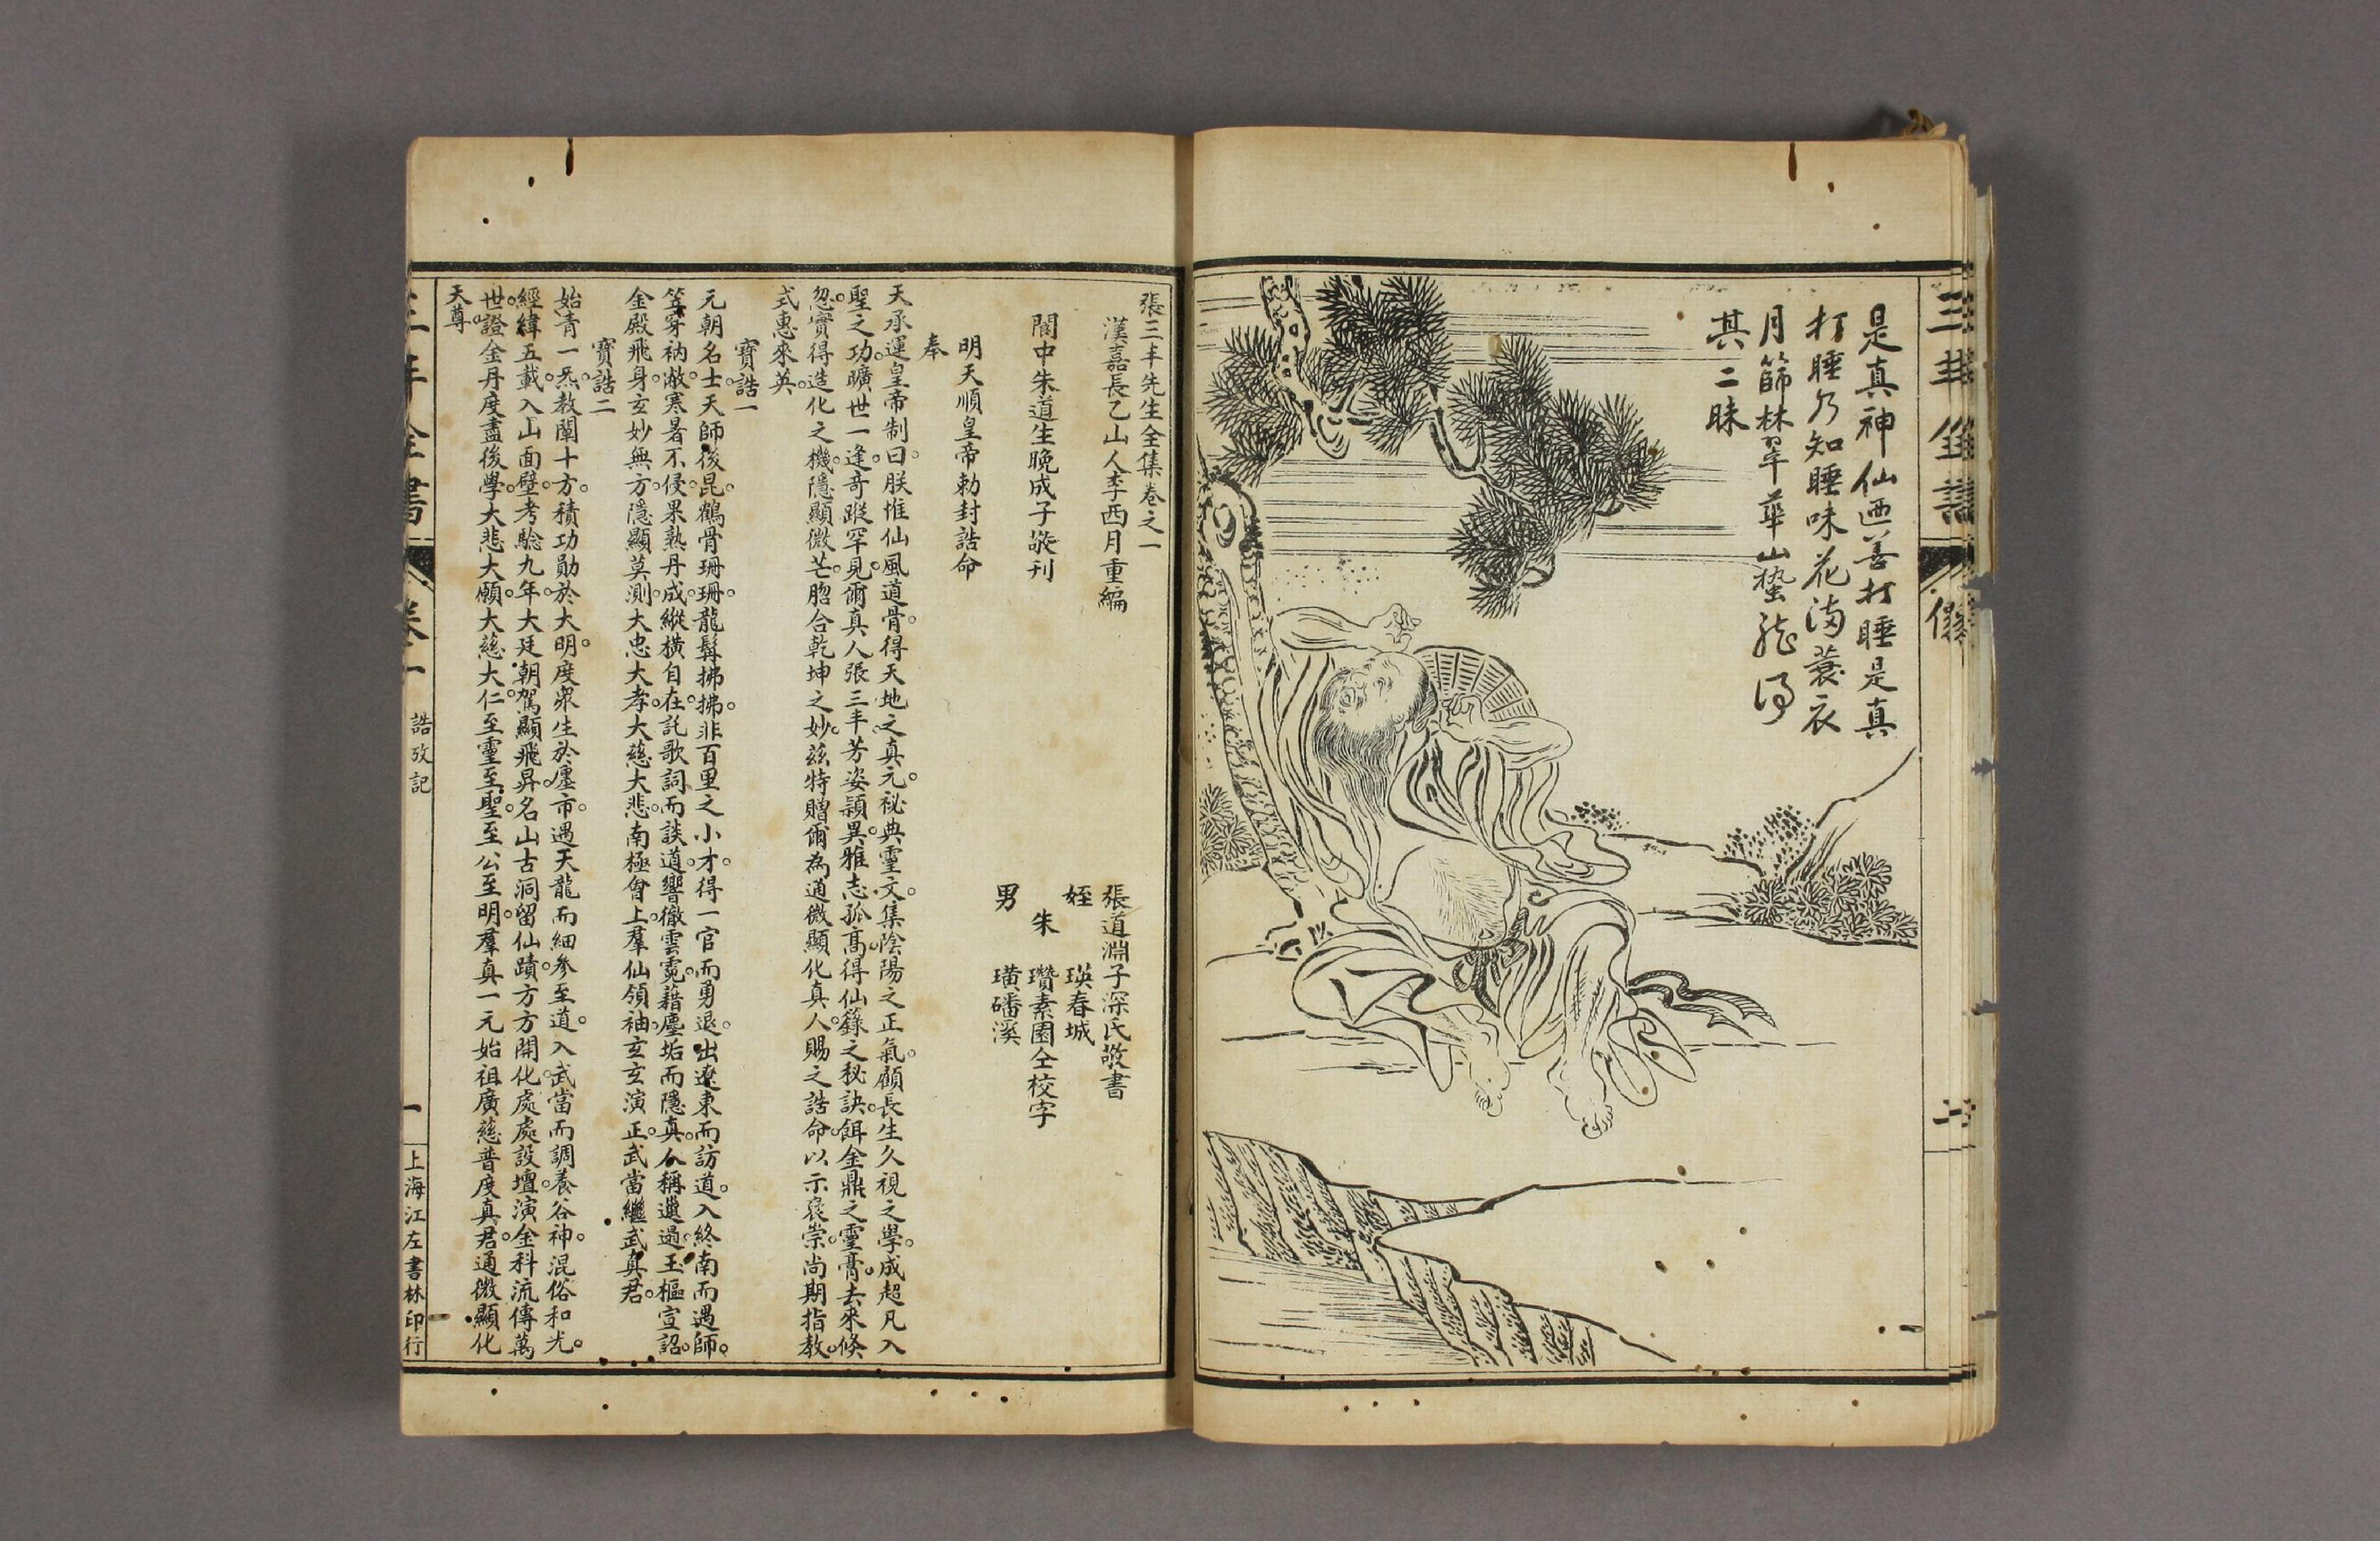 是真神仙迺善打睡是真
打睡乃知睡味花滿蓑衣
月篩林翠華山蟄龍得
其二昧
張三丰先生全集卷之一
漢嘉長乙山人李西月重編
張道淵子深氏敬書
姪 瑛春城
閬中朱道生晚成子敬刊
朱 瓚素園仝校字
男 璜磻溪
明天順皇帝勅封誥命
奉
天承運皇帝制曰朕惟仙風道骨得天地之真元祕典靈文集陰陽之正氣顧長生久視之學成超凡入
聖之功曠世一逢奇蹤罕見爾真人張三丰芳姿穎異雅志孤高得仙籙之秘訣餌金鼎之靈膏去來倐
忽實得造化之機隱顯微芒脗合乾坤之妙兹特贈爾為通微顯化真人賜之誥命以示褒崇尚期指教
式惠來英
寶誥一
元朝名士天師後昆鶴骨珊珊龍髯拂拂非百里之小才得一官而勇退出遼東而訪道入終南而遇師
笠穿衲敝寒暑不侵果熟丹成縱橫自在託歌詞而談道響徹雲霓藉塵垢而隱真人稱邋遢玉樞宣詔
金殿飛身玄妙無方隱顯莫測大忠大孝大慈大悲南極會上羣仙領袖玄玄演正武當繼武真君
寶誥二
始青一炁教闡十方積功勛於大明度眾生於廛市遇天龍而細參至道入武當而調養谷神混俗和光
經緯五載入山面壁考驗九年大廷朝駕顯飛昇名山古洞留仙蹟方方開化處處設壇演金科流傳萬
世證金丹度盡後學大悲大願大慈大仁至靈至聖至公至明羣真一元始祖廣慈普度真君通微顯化
天尊
三丰全書
卷一
誥攷記
一
上海江左書林印行